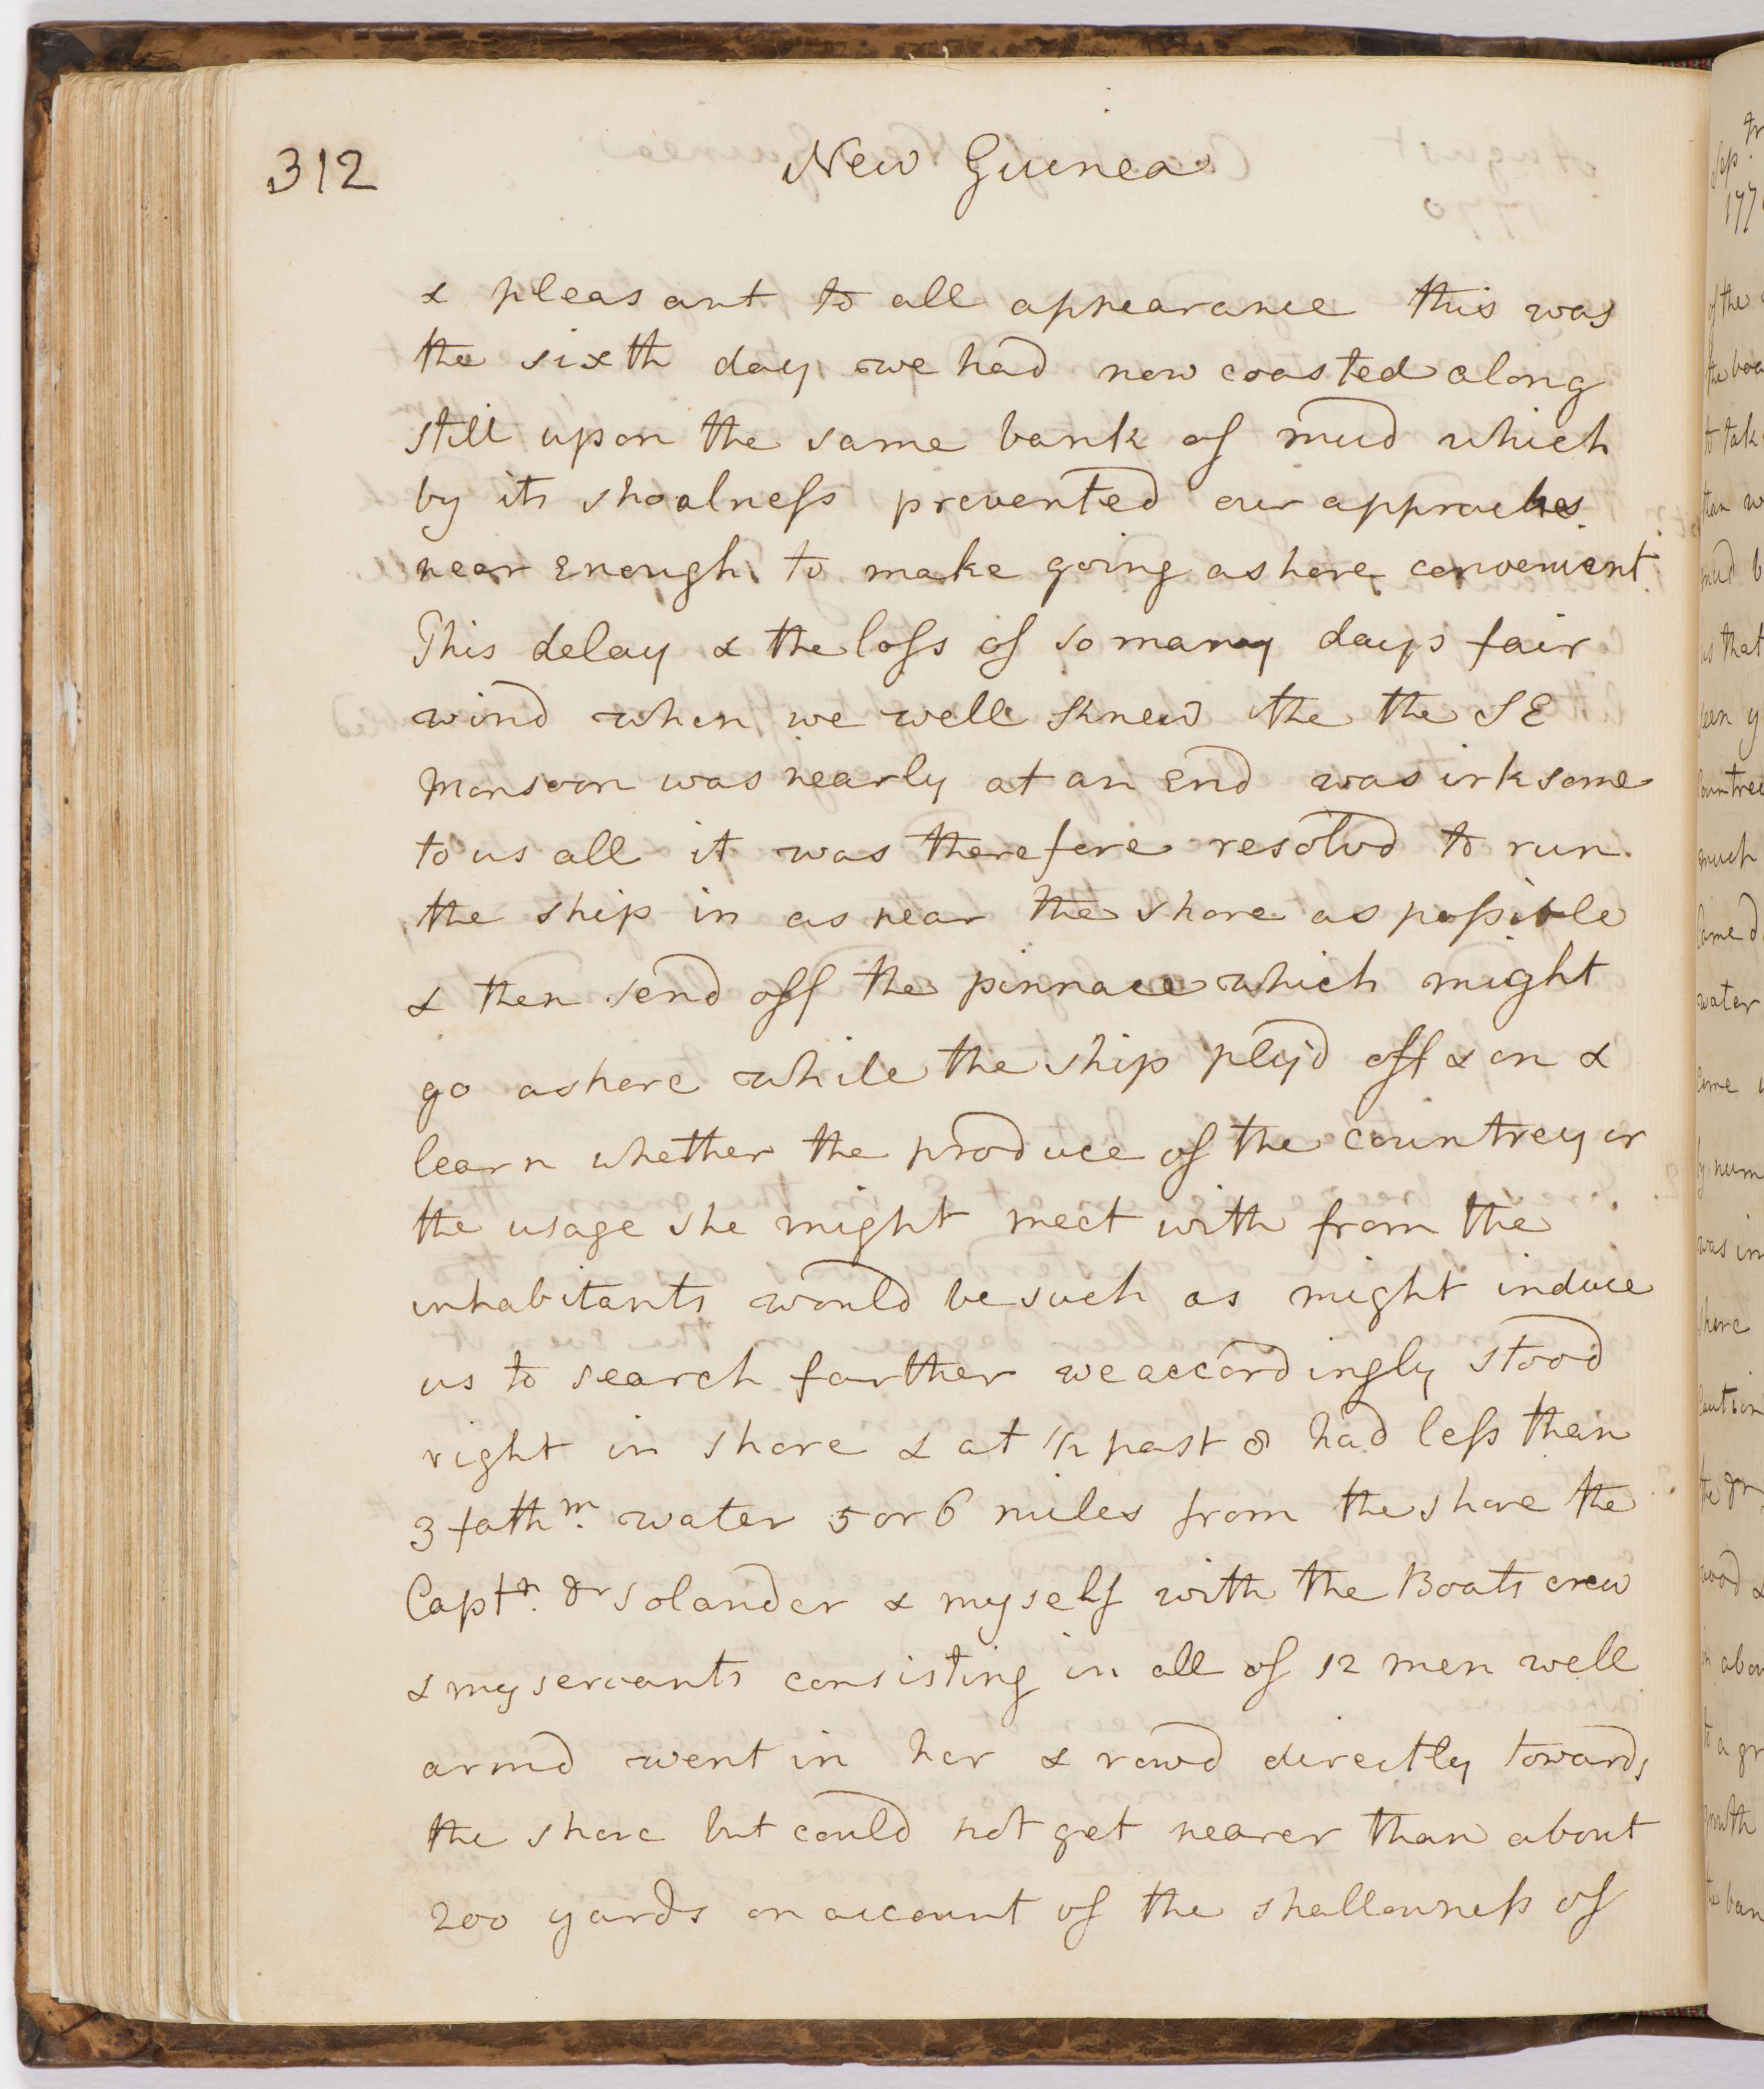 312
New Guinea
& pleasant to all appearance this was
the sixth day we had now coasted along
still upon the same bank of mud which
by its shoalness prevented our approaches
near enough to make going ashore convenient.
This delay & the loss of so many days fair
wind when we well knew the the SE
Monsoon was nearly at an End was irksome
to us all it was therefore resolvd to run
the ship in as near the shore as possible
& then send off the pinnace which might
go ashore while the ship plyd off & on &
learn whether the produce of the countrey or
the usage she might meet with from the
inhabitants would be such as might induce
us to search farther we accordingly stood
right in shore & at 1/2 past 8 had less than
3 fathm. water 5 or 6 miles from the shore the
Captn. Dr Solander & myself with the Boats crew
& my servants consisting in all of 12 men well
armd went in her & rowd directly towards
the shore but could not get nearer than about
200 yards on account of the shallowness of